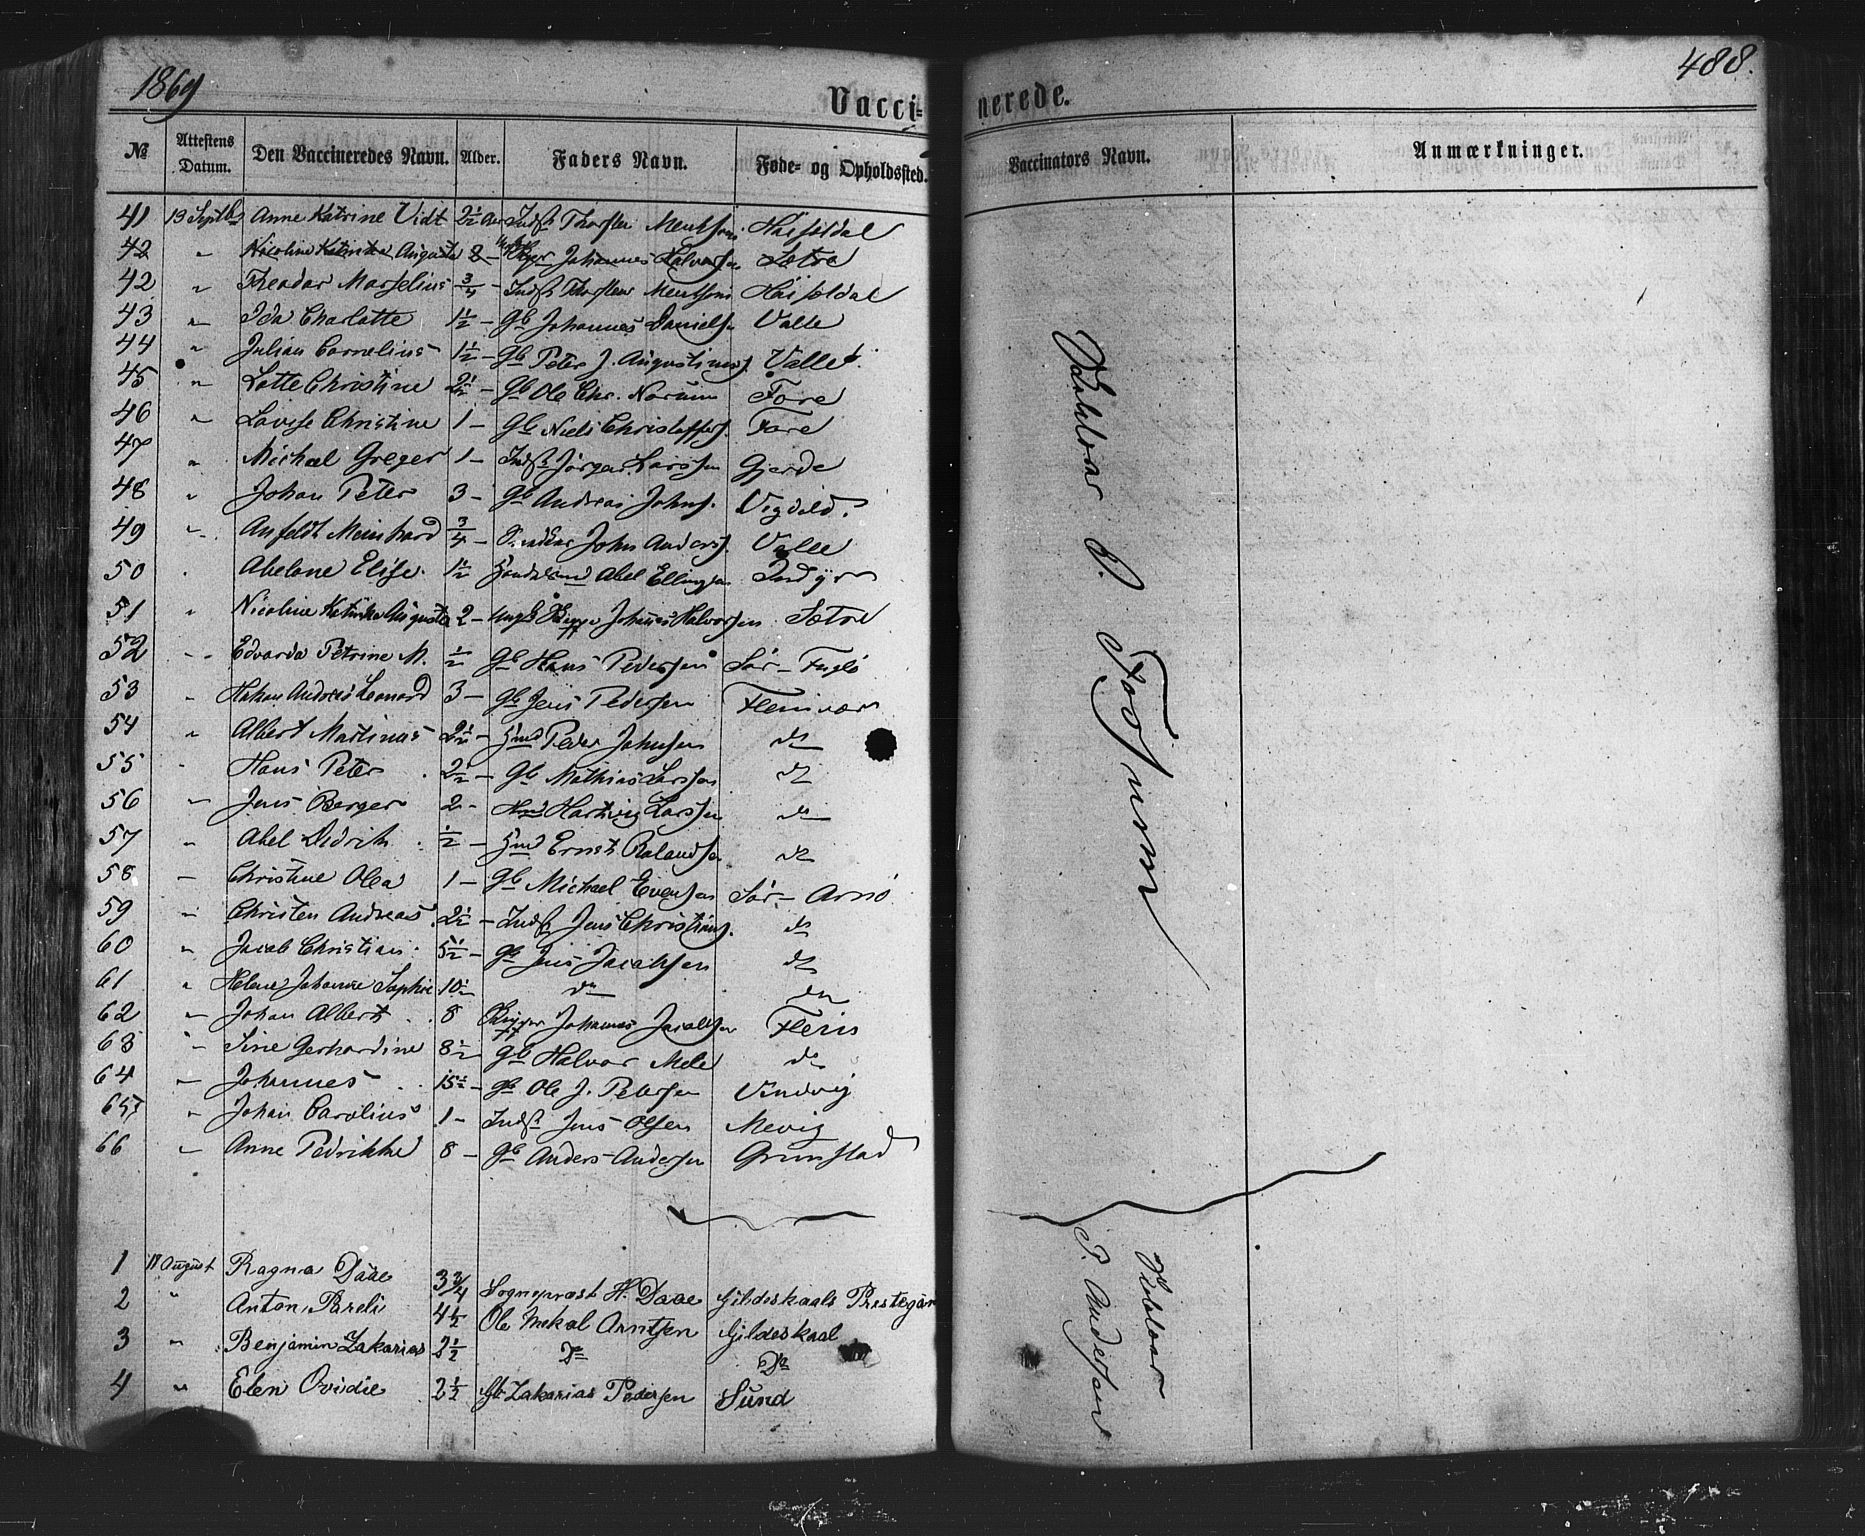 1869
488.
Vacci-nerede.
№ Attestens Datum. Den Vaccineredes Navn. Alder. Faders Navn. Føde- og Opholdssted. Vaccinators Navn. Anmærkninger.
41 13 Septbr Anne Katrine Vidt 2½ Indst Thorsten Mentsen
42 " Nicoline Katinka Augusta 8 - Johannes Halvorsen Sætre
42 " Theodor Marselius ¾ - Indst Thorsten Mentsen
43 " Ida Charlotte 1½ - Gb Johannes Danielsen Valle
44 " Julian Cornelius 1½ - Gb Peter J. Augustinusf. Valle
45 " Lotte Christine 2½ - Gb Ole Chr. Norum Fore
46 " Lovise Christine 1 - Gb Niels Christoffers. Fore
47 " Michael Greger 1 - Indst Jørgen Larssen Gjerde
48 " Johan Peter 3 - Gb Andreas Johns.
49 " Anfeldt Meinhard ¾ - John Anders. Valle
50 " Abelone Elise 1½ Abel Ellingsen Indyr
51 " Nicoline Katinka Augusta 2 - Johannes Halvorsen Sætre
52 " Edvarda Petrine M. ½ Gb Hans Pedersen Sør-Fuglø
53 " Hakon Andreas Leonard 3 - Gb Jens Pedersen Fleinvær
54 " Albert Martinus 2½ - Hmd Peder Johnsen do
55 " Hans Peter 2½ - Gb Mathias Larssen do
56 " Jens Berger 2 - Hmd Hartvig Larssen do
57 " Abel Didrik ½ - Hmd Ernst Rolandsen do
58 " Christine Olea 1 - Gb Michael Evensen Sør-Arnø
59 " Christen Andreas 2½ - Indst Jens Christians. do
60 " Jacob Christian 5½ - Gb Jens Jacobsen do
61 " Helene Johanne Sophie 10½ do do
62 " Johan Albert 8 Johannes Jacobsen Fleis
63 " Sine Gerhardine 8½ Gb Halvor Mele do
64 " Johannes 15½ - Gb Ole J. Petersen Vindvig
65 " Johan Carolius 1 - Indst Jens Olsen Mevig
66 " Anne Pedrikke 8 - Gb Anders Andersen Grimstad
1 18 August Ragna Daae 3¾ Sogneprest H. Daae Gildeskaals Prestegaard
2 " Anton Pareli 4½ Ole Mekal Arntsen Gildeskaal
3 " Benjamin Zakarias 2½ Do Do
4 " Elen Ovidie 2½ Gb Zakarias Pedersen Sund
P. Andersen